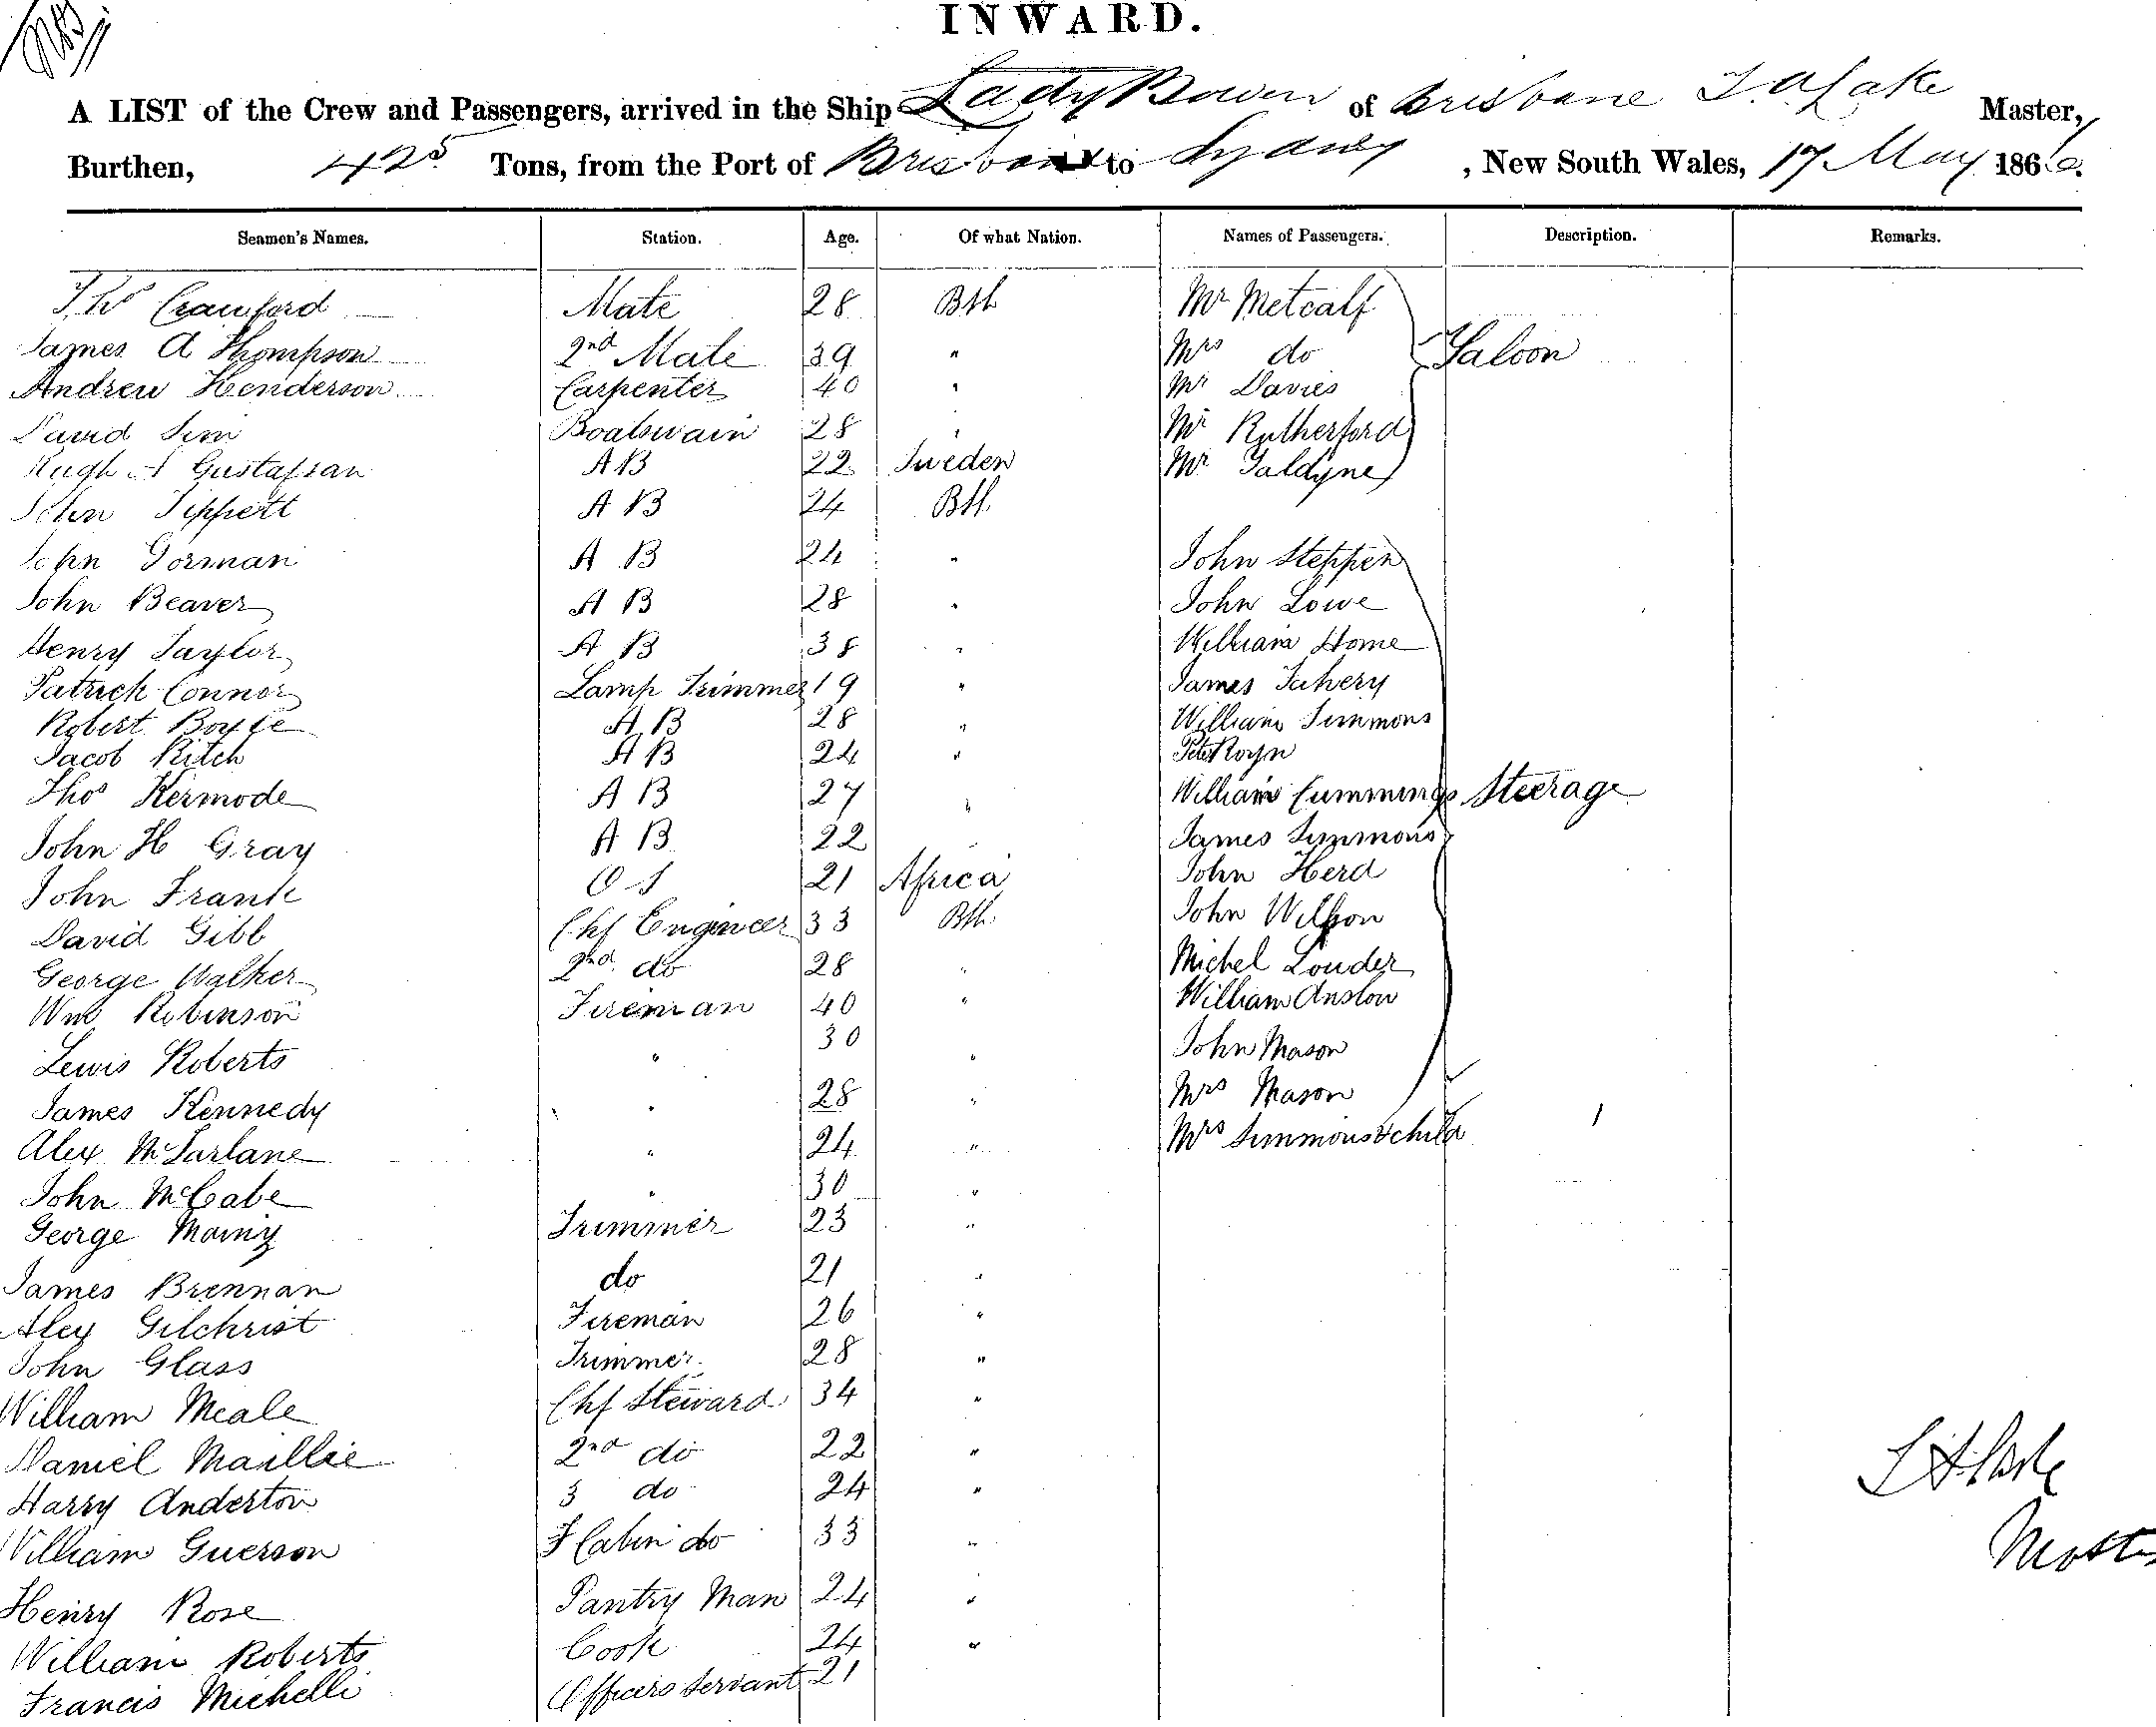 INWARD.
A LIST of the Crew and Passengers, arrived in the Ship Lady Bowen of Brisbane Master,
Burthen, 425 Tons, from the Port of Brisbane to Sydney , New South Wales, 17 May 186
Seamen's Names. Station. Age. Of what Nation. Names of Passengers. Description. Remarks.
Crawford Mate 28 Bth Mr Metcalf
James A Thompson 2nd Mate 39 " Mrs do Saloon
Andrew Henderson Carpenter 40 " Mr Davies
David Sim Boatswain 28 " Mr Rutherford
Hugh A Gustafsan A B 22 Sweden Mr
John Tippett A B 24 Bth
John Gorman A B 24 " John Steppen
John Beaver A B 28 " John Lowe
Henry Taylor A B 38 " William Home
Patrick Connor Lamp Trimmer 19 " James Fahery
Robert Boyle A B 28 " William Simmons
Jacob Ritch A B 24 " Peter
Thos Kermode A B 27 " William Cummings Steerage
John H Gray A B 22 " James Simmons
John Frank O S 21 Africa John Herd
David Gibb Chf Engineer 33 Bth. John Wilson
George Walker 2nd do 28 " Michel Louder
Wm Robinson Fireman 40 " William Anslow
Lewis Roberts " 30 " John Mason
James Kennedy " 28 " Mrs Mason
Alex McFarlane " 24 " Mrs Simmons & child
John McCabe " 30 "
George Trimmer 23 "
James Brennan do 21 "
Alex Gilchrist Fireman 26 "
John Glass Trimmer 28 "
William Meale Chf Steward 34 "
Daniel Maillie 2nd do 22 "
Harry Anderton 3 do 24 "
William Guerson F Cabin do 33 "
Henry Rose Pantry Man 24 "
William Roberts Cook 24 "
Francis Michelli Officers Servant 21